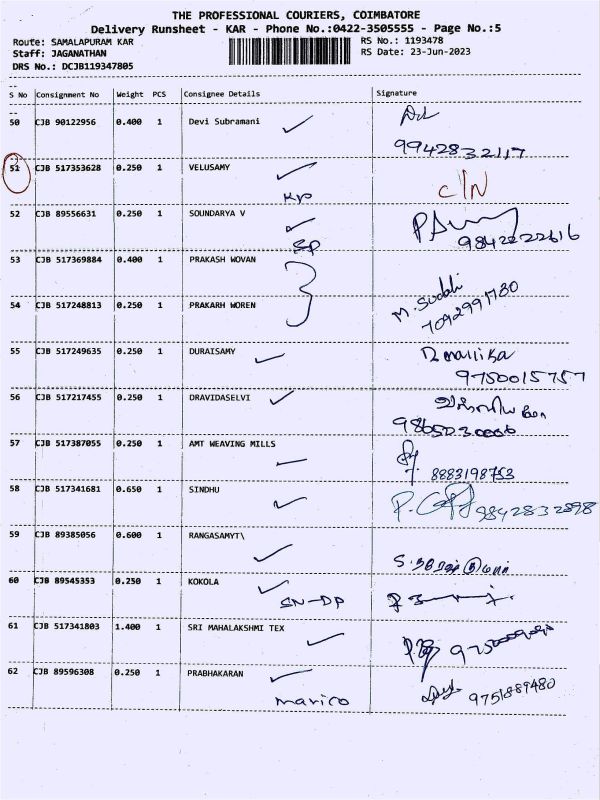 THE PROFESSIONAL COURIERS, COIMBATORE
Delivery Runsheet - KAR - Phone No.:0422-3505555 - Page No.:5
Route: SAMALAPURAM KAR RS No.: 1193478
Staff: JAGANATHAN RS Date: 23-Jun-2023
DRS No.: DCJB119347805
S No Consignment No Weight PCS Consignee Details Signature
50 CJB 90122956 0.400 1 Devi Subramani
99428 32117
51 CJB 517353628 0.250 1 VELUSAMY
KP C/N
52 CJB 89556631 0.250 1 SOUNDARYA V
SP 9842222616
53 CJB 517369884 0.400 1 PRAKASH WOVAN
54 CJB 517248813 0.250 1 PRAKARH WOREN
55 CJB 517249635 0.250 1 DURAISAMY D. mallika
9750015757
56 CJB 517217455 0.250 1 DRAVIDASELVI
57 CJB 517387055 0.250 1 AMT WEAVING MILLS
8883198753
58 CJB 517341681 0.650 1 SINDHU
9842832898
59 CJB 89385056 0.600 1 RANGASAMYT\
60 CJB 89545353 0.250 1 KOKOLA
SN-DP
61 CJB 517341803 1.400 1 SRI MAHALAKSHMI TEX
62 CJB 89596308 0.250 1 PRABHAKARAN
marico 9751889480